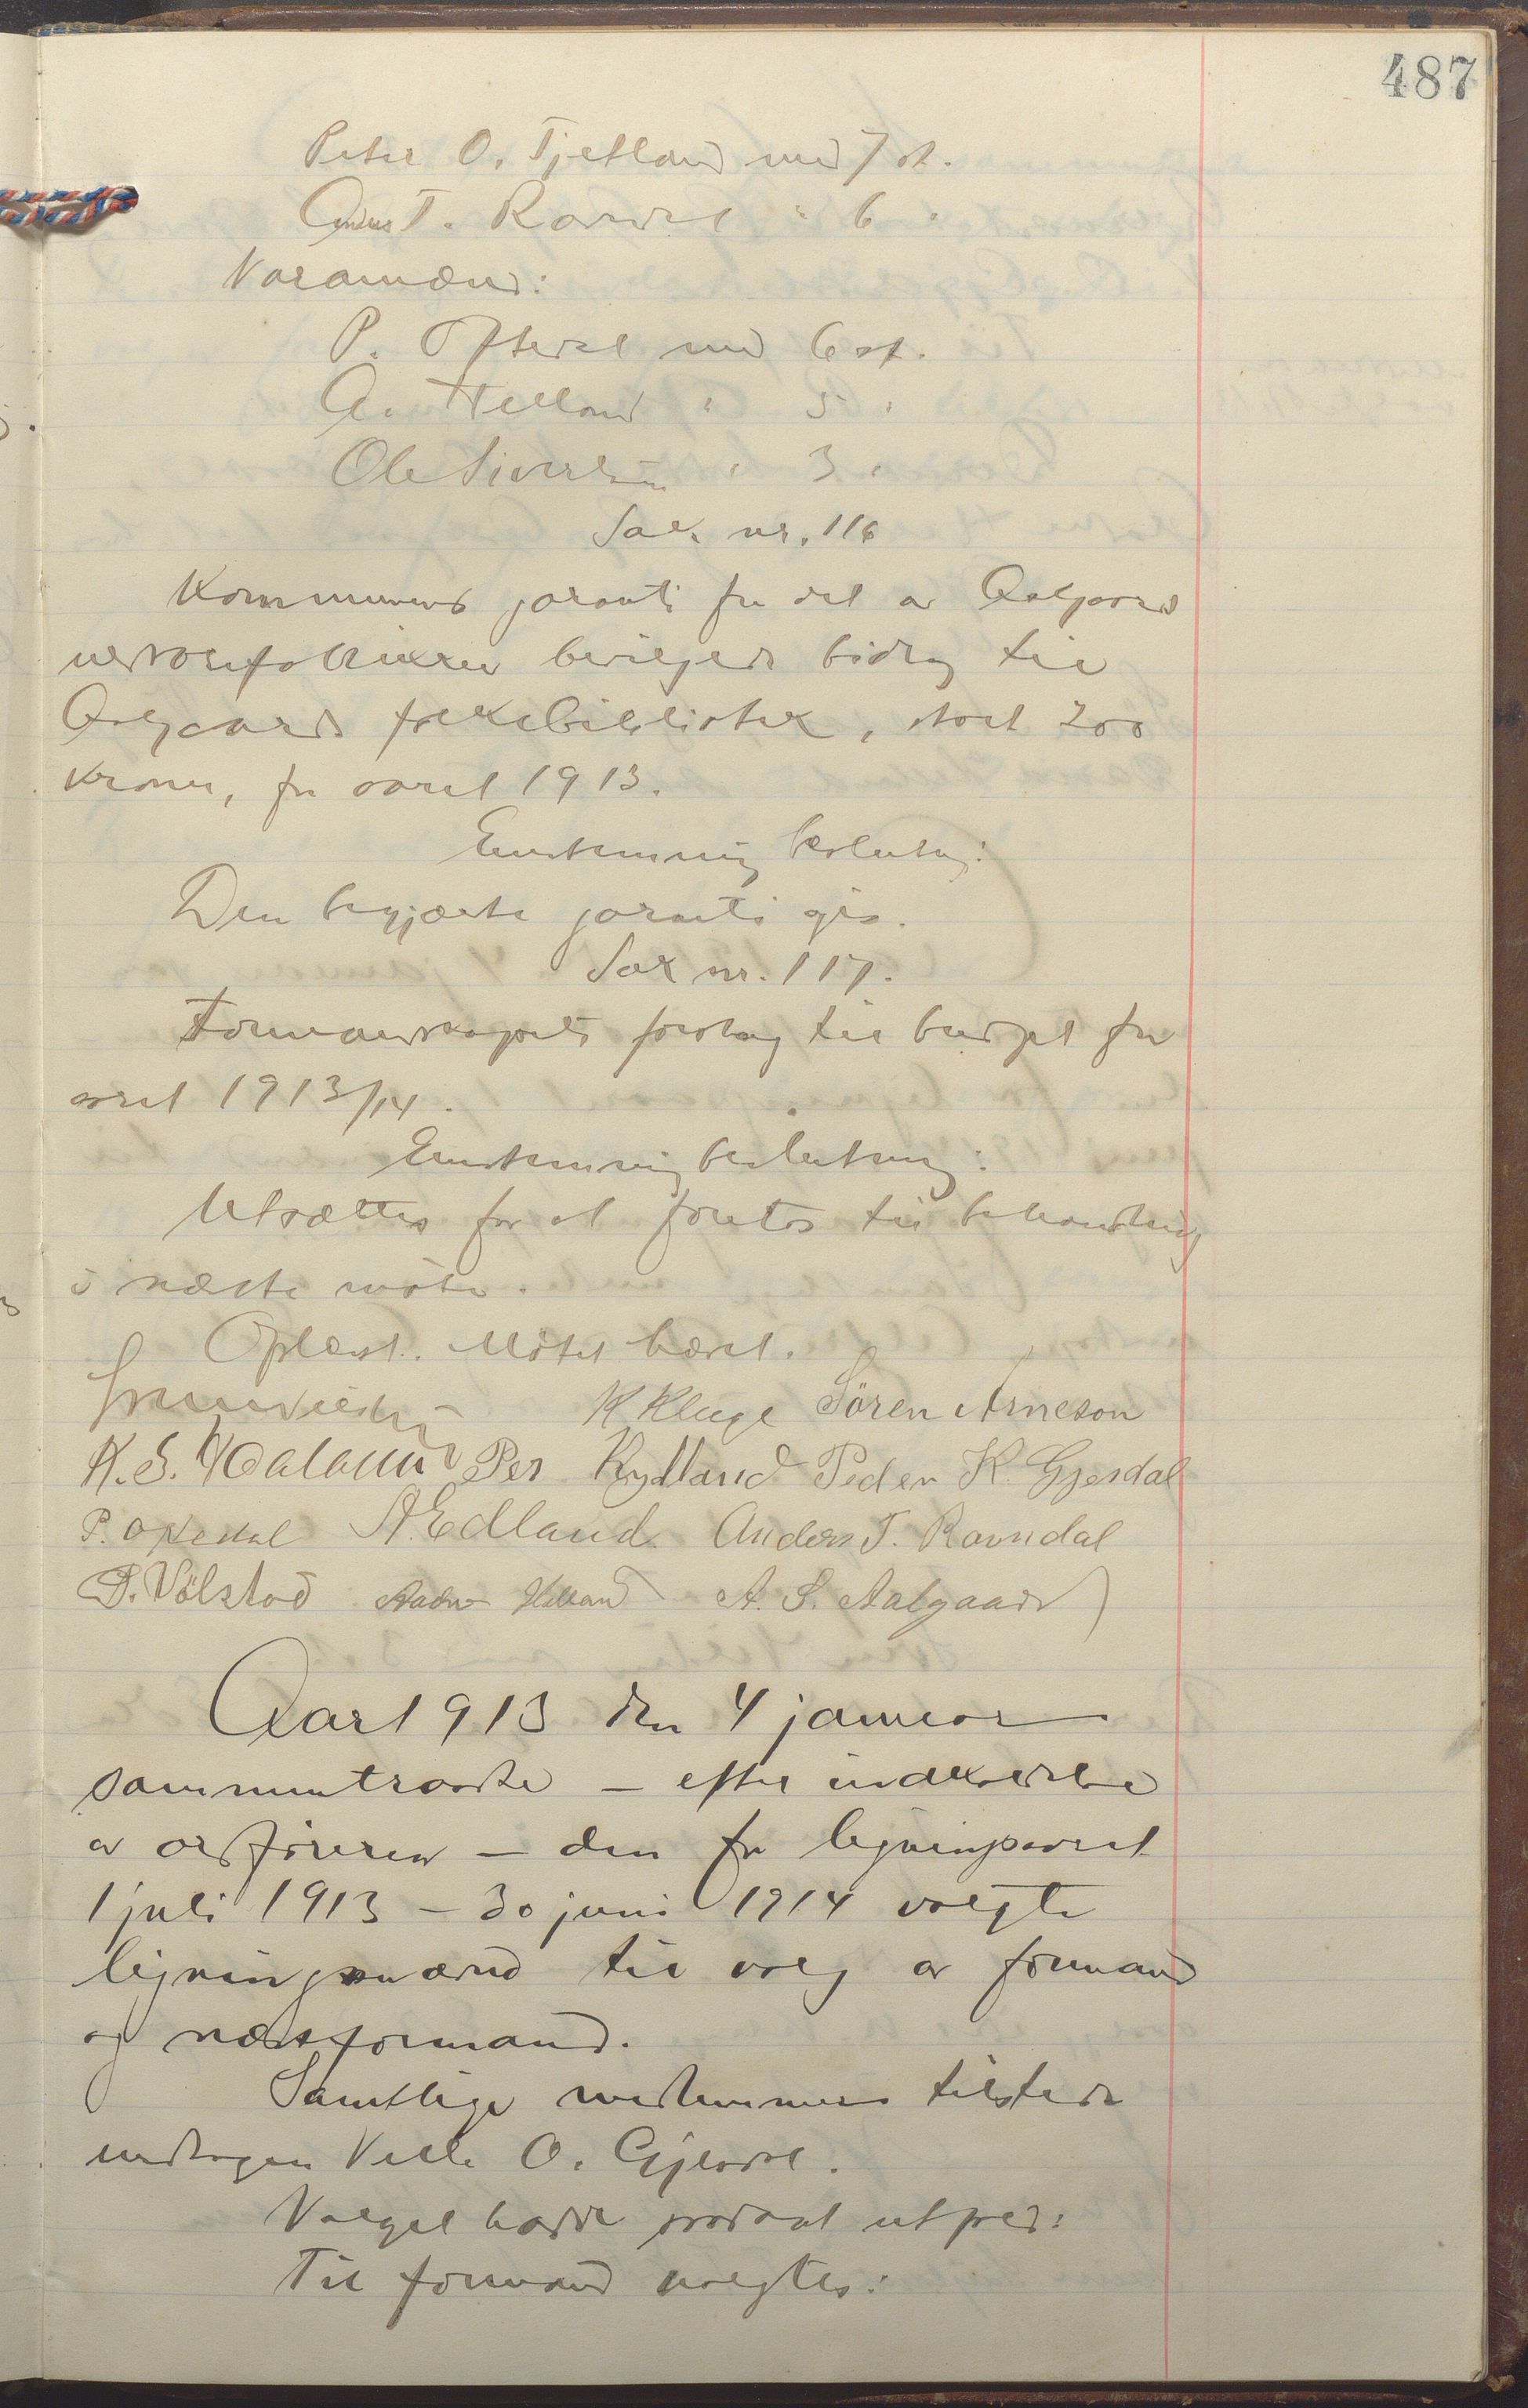 487
Peter O. Tjetland med 7 st.
Anders T. Ravndal " 6 "
Varamænd:
P. Oftedal med 6 st.
A. Helland " 5 "
Ole Sivertsen " 3 "
Sak nr. 116
Kommunens garanti for det av Aalgaards
uldvarefabrikker bevilgede bidrag til
Aalgaards folkebibliotek, stort 200
kroner, for aaret 1913.
Enstemmig beslutning:
Den begjærte garanti gis.
Sak nr. 117.
Formandskapets forslag til budget for
aaret 1913/14.
Enstemmig beslutning:
Utsættes for at foretas til behandling
i næste møte.
Oplæst. Møtet hævet.
K Kluge Sören Arneson
K. S. Haaland Per Kydland Peder K. Gjesdal
P. Oftedal A. Edland Anders T. Ravndal
T. Vølstad Aadne Helland A. S. Aalgaard
Aar 1913 den 4 januar
sammentraadte – efter indkaldelse
av ordføreren – den for ligningsaaret
1 juli 1913 – 30 juni 1914 valgte
ligningsnævnd til valg av formand
og næstformand.
Samtlige medlemmer tilstede
undtagen Velle O. Gjesdal.
Valget hadde saadant utfald:
Til formand valgtes: